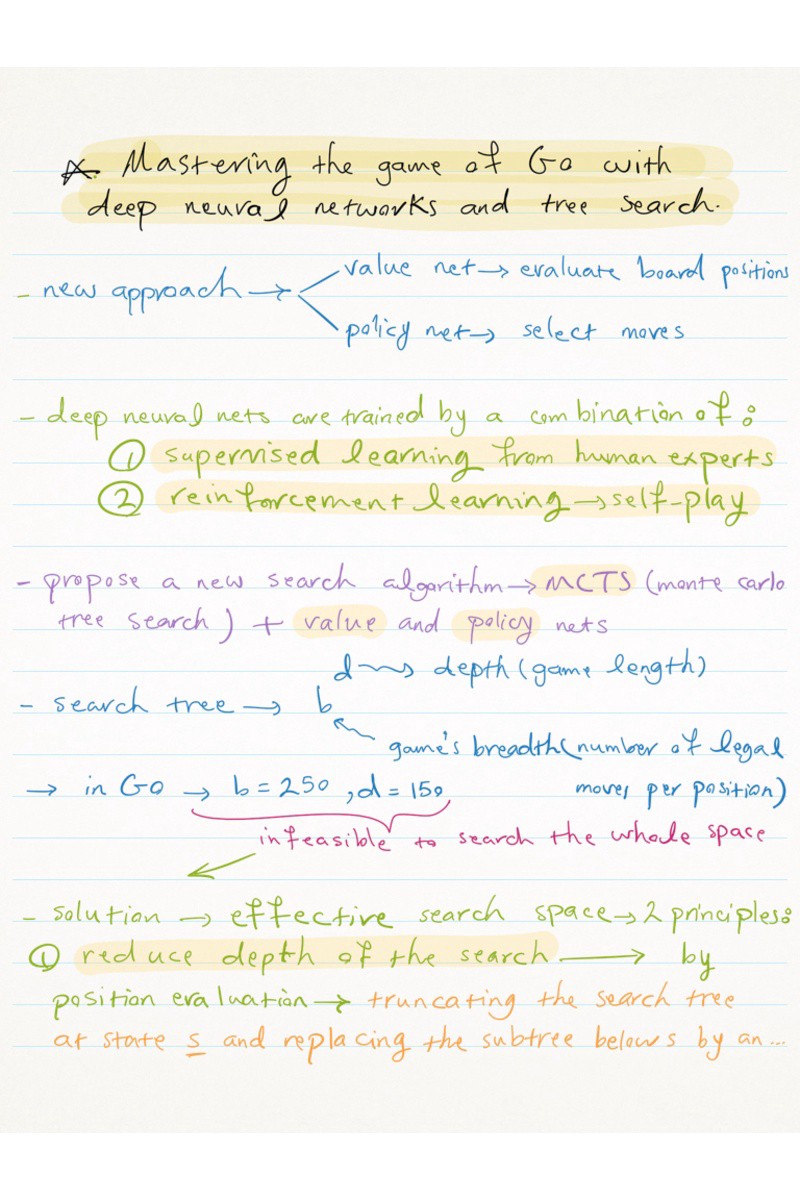 ☆ Mastering the game of Go with
deep neural networks and tree search.
- new approach → value net → evaluate board positions
policy net → select moves
- deep neural nets are trained by a combination of:
① supervised learning from human experts
② reinforcement learning → self-play
- propose a new search algorithm → MCTS (monte carlo
tree search) + value and policy nets
d → depth (game length)
- search tree → b
game's breadth (number of legal
moves per position)
→ in Go → b = 250, d = 150
infeasible to search the whole space
- solution → effective search space → 2 principles:
① reduce depth of the search → by
position evaluation → truncating the search tree
at state s and replacing the subtree below s by an ...